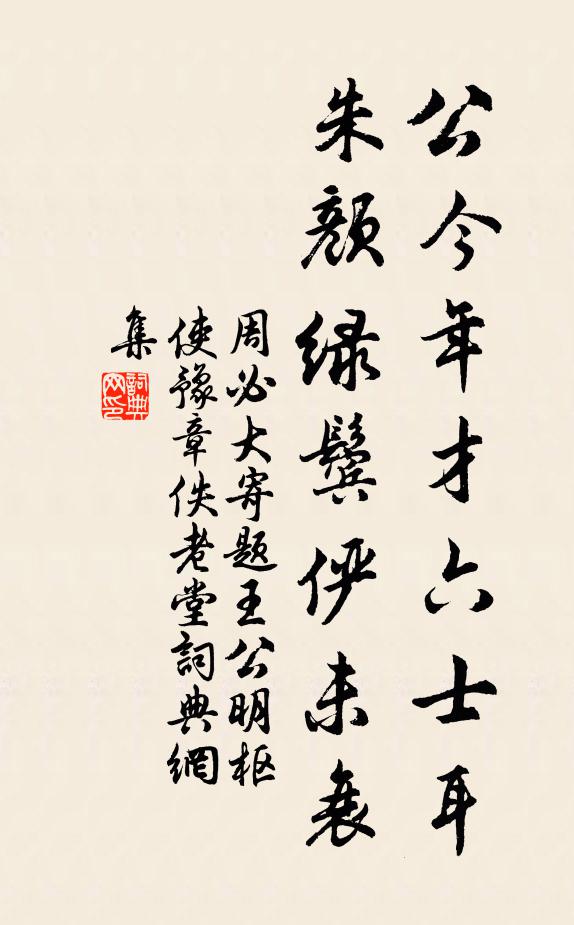 公今年才六士耳
朱顏緑鬓俨未衰
周必大寄題王公明枢
使豫章佚老堂詞典網
集
詞典
网印